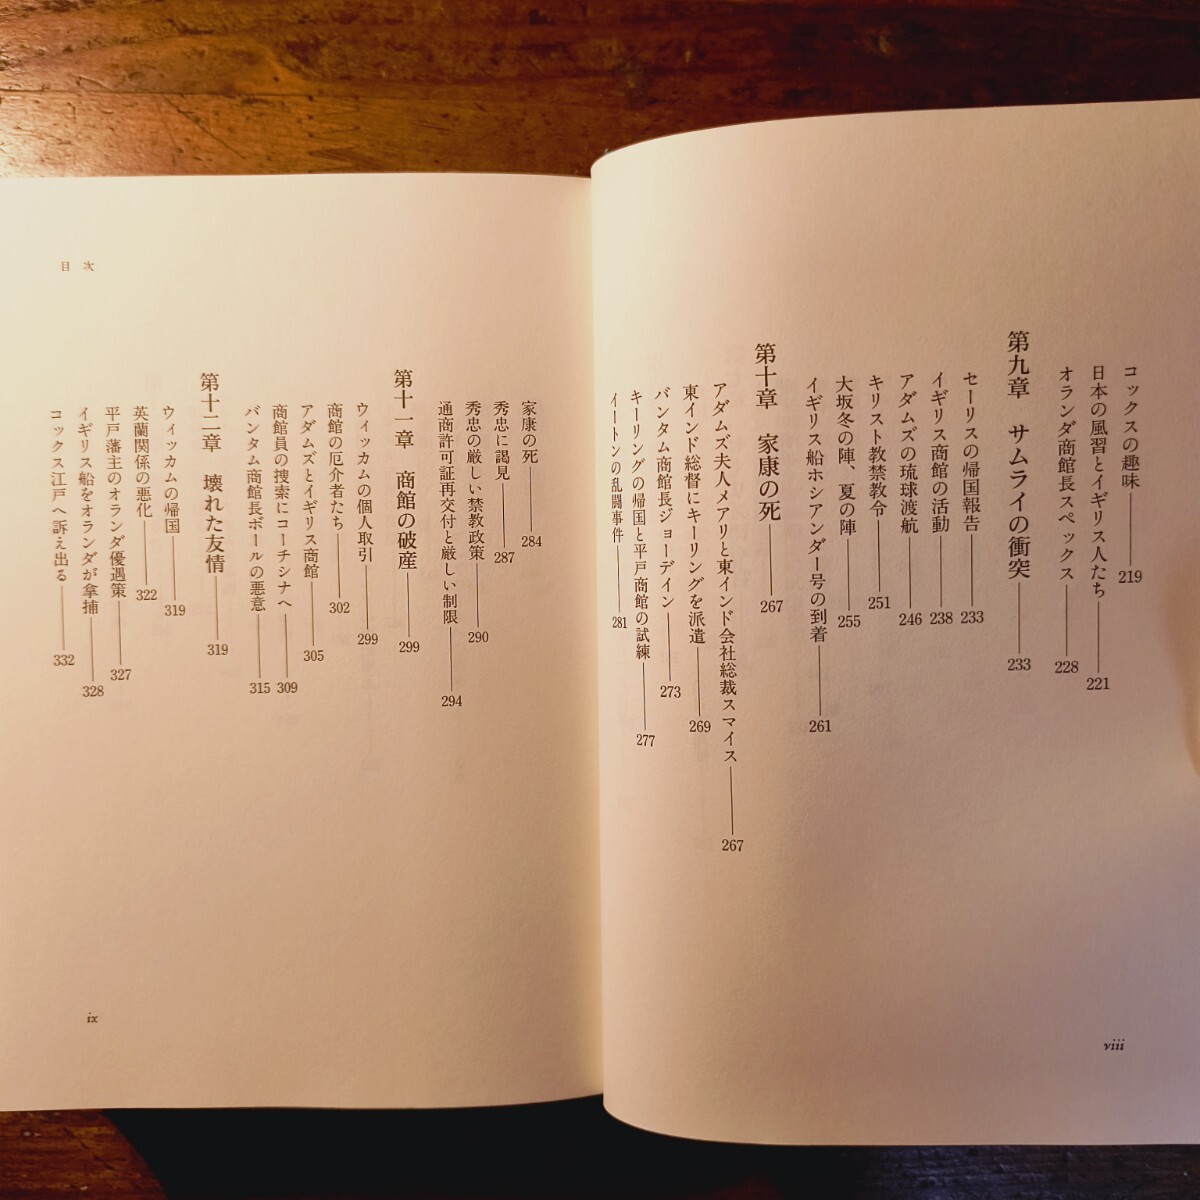 コックスの趣味 219
日本の風習とイギリス人たち 221
オランダ商館長スペックス 228
第九章 サムライの衝突 233
セーリスの帰国報告 233
イギリス商館の活動 238
アダムズの琉球渡航 246
キリスト教禁教令 251
大坂冬の陣、夏の陣 255
イギリス船ホシアンダー号の到着 261
第十章 家康の死 267
アダムズ夫人メアリと東インド会社総裁スマイス 267
東インド総督にキーリングを派遣 269
バンタム商館長ジョーデイン 273
キーリングの帰国と平戸商館の試練 277
イートンの乱闘事件 281
viii
目次
家康の死 284
秀忠に謁見 287
秀忠の厳しい禁教政策 290
通商許可証再交付と厳しい制限 294
第十一章 商館の破産 299
ウィッカムの個人取引 299
商館の厄介者たち 302
アダムズとイギリス商館 305
商館員の捜索にコーチシナへ 309
バンタム商館長ボールの悪意 315
第十二章 壊れた友情 319
ウィッカムの帰国 319
英蘭関係の悪化 322
平戸藩主のオランダ優遇策 327
イギリス船をオランダが拿捕 328
コックス江戸へ訴え出る 332
ix